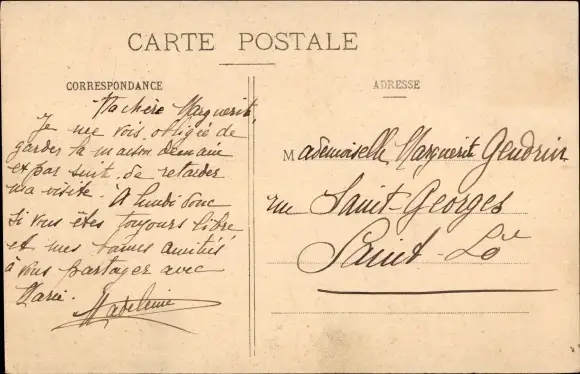 CARTE POSTALE
CORRESPONDANCE
ADRESSE
Ma chère Marguerit,
Je me vois obligée de
garder la maison demain
et par suit de retarder
ma visite. A lundi donc
si vous êtes toujours libre
et mes bonnes amitiés
à vous partager avec
Marie.
Madeleine
Mademoiselle Marguerit Gendrin
rue Saint-Georges
Saint-Lô